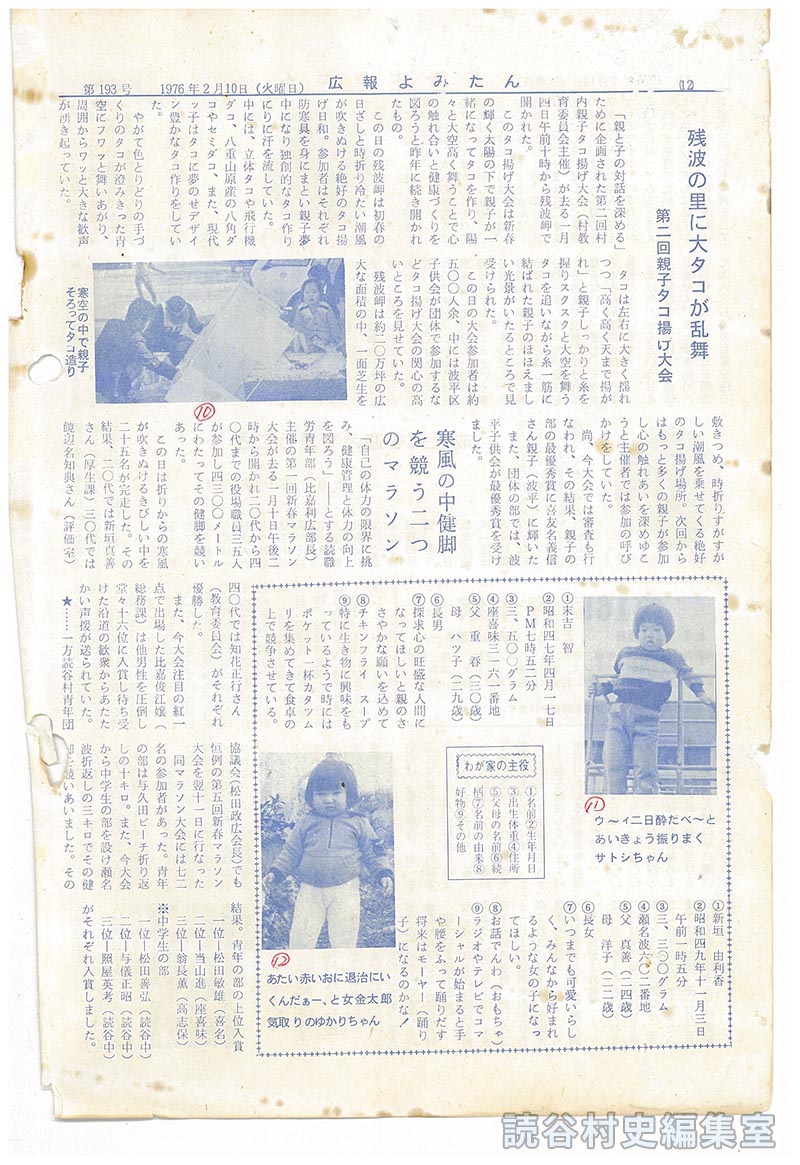 第193号
1976年2月10日（火曜日）
広報よみたん
(12)
残波の里に大タコが乱舞
第二回親子タコ揚げ大会
「親と子の対話を深める」
ために企画された第二回村
内親子タコ揚げ大会（村教
育委員会主催）が去る一月
四日午前十時から残波岬で
開かれた。
このタコ揚げ大会は新春
の輝く太陽の下で親子が一
緒になってタコを作り、陽
々と大空高く舞うことで心
の触れ合いと健康づくりを
図ろうと昨年に続き開かれ
たもの。
この日の残波岬は初春の
日ざしと時折り冷たい潮風
が吹きぬける絶好のタコ揚
げ日和。参加者はそれぞれ
防寒具を身にまとい親子夢
中になり独創的なタコ作り
にりに汗を流していた。
中には、立体タコや飛行機
ダコ、八重山原産の八角ダ
コやセミダコ、また、現代
ッ子はタコに夢のせデザイ
ン豊かなタコ作りをしてい
た。
やがて色とりどりの手づ
くりのタコが澄みきった青
空にフワッと舞いあがり、
周囲からワッと大きな歓声
が湧き起っていた。
タコは左右に大きく揺れ
つつ「高く高く天まで揚が
れ」と親子しっかりと糸を
握りスクスクと大空を舞う
タコを追いながら糸一筋に
結ばれた親子のほほえまし
い光景がいたるところで見
受けられた。
この日の大会参加者は約
五〇〇人余、中には波平区
子供会が団体で参加するな
どタコ揚げ大会の関心の高
いところを見せていた。
残波岬は約二〇万坪の広
大な面積の中、一面芝生を
寒空の中で親子
そろってタコ造り
⑩
敷きつめ、時折りすがすが
しい潮風を乗せてくる絶好
のタコ揚げ場所。次回から
はもっと多くの親子が参加
し心の触れあいを深めゆこ
うと主催者では参加の呼び
かけをしていた。
尚、今大会では審査も行
なわれ、その結果、親子の
部の最優秀賞に喜友名義信
さん親子（波平）に輝いた
また、団体の部では、波
平子供会が最優秀賞を受け
ました。
寒風の中健脚
を競う二つ
のマラソン
「自己の体力の限界に挑
み、健康管理と体力の向上
を図ろう」――とする読職
労青年部（比嘉利広部長）
主催の第一回新春マラソン
大会が去る一月十日午後二
時から開かれ二〇代から四
〇代までの役場職員三五人
が参加し四三〇〇メートル
にわたってその健脚を競い
あった。
この日は折りからの寒風
が吹きぬけるきびしい中を
二十五名が完走した。その
結果、二〇代では新垣真善
さん（厚生課）三〇代では
饒辺名知典さん（評価室）
四〇代では知花正行さん
（教育委員会）がそれぞれ
優勝した。
また、今大会注目の紅一
点で出場した比嘉俊江嬢（
総務課）は他男性を圧倒し
堂々十六位に入賞し待ち受
けた沿道の歓衆からあたた
かい声援が送られていた。
★……一方読谷村青年団
協議会（松田政広会長）でも
恒例の第五回新春マラソン
大会を翌十一日に行なった
同マラソン大会には七二
名の参加者があった。青年
の部は与久田ビーチ折り返
しの十キロ。また、今大会
から中学生の部を設け瀬名
波折返しの三キロでその健
脚を競いあいました。その
結果。青年の部の上位入賞
一位―松田敏雄（喜名）
二位―当山進（座喜味）
三位―翁長薫（高志保）
※中学生の部
一位―松田善弘（読谷中）
二位―与儀正昭（読谷中）
三位―照屋英考（読谷中）
がそれぞれ入賞しました。
⑪
ウ～ィ二日酔だべ～と
あいきょう振りまく
サトシちゃん
①末吉 智
②昭和四七年四月一七日
PM七時五二分
③三、五〇〇グラム
④座喜味三一六一番地
⑤父 重春（三〇歳）
母 ハツ子（二九歳）
⑥長男
⑦探求心の旺盛な人間に
なってほしいと親のさ
さやかな願いを込めて
⑧チキンフライ スープ
⑨特に生き物に興味をも
っているようで時には
ポケット一杯カタツム
リを集めてきて食卓の
上で競争させている。
わが家の主役
①名前②生年月日
③出生体重④住所
⑤父母の名前⑥続
柄⑦名前の由来⑧
好物⑨その他
①新垣 由利香
②昭和四九年十一月三日
午前一時五分
③三、三〇〇グラム
④瀬名波六〇二番地
⑤父 真善（二四歳）
母 洋子（二二歳）
⑥長女
⑦いつまでも可愛いらし
く、みんなから好まれ
るような女の子になっ
てほしい。
⑧お話でんわ（おもちゃ）
⑨ラジオやテレビでコマ
ーシャルが始まると手
や腰をふって踊りだす
将来はモーヤー（踊り
子）になるのかな！
⑫
あたい赤いおに退治にい
くんだぁー、と女金太郎
気取りのゆかりちゃん
読谷村史編集室